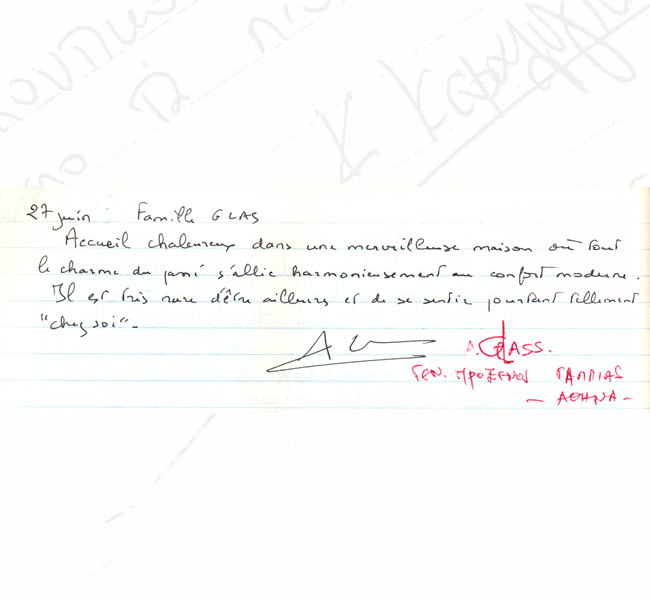 27 juin : Famille GLAS
Accueil chaleureux dans une merveilleuse maison où tout
le charme du passé s'allie harmonieusement au confort moderne.
Il est très rare d'être ailleurs et de se sentir pourtant tellement
"chez soi".
A. GLASS.
ΓΕΝ. ΠΡΟΞΕΝΟΣ ΓΑΛΛΙΑΣ
- ΑΘΗΝΑ -